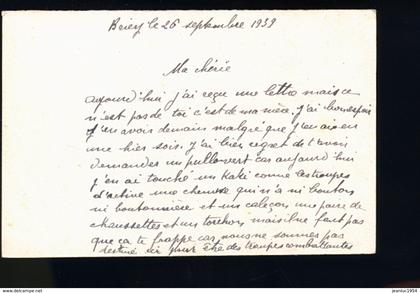 Briey le 26 septembre 1939
Ma chérie
aujourd'hui j'ai reçu une lettre mais ce
n'est pas de toi c'est de ma mère. j'ai bon espoir
d'en avoir demain malgré que j'en ai eu
une hier soir. j'ai bien regret de t'avoir
demander un pullovert car aujourd'hui
j'en ai touché un Kaki comme les troupes
d'active une chemise qui n'a ni bouton
ni boutonnière et un caleçon une paire de
chaussettes et un torchon mais il ne faut pas
que ça te frappe car nous ne sommes pas
destiné ici pour être des troupes combattantes